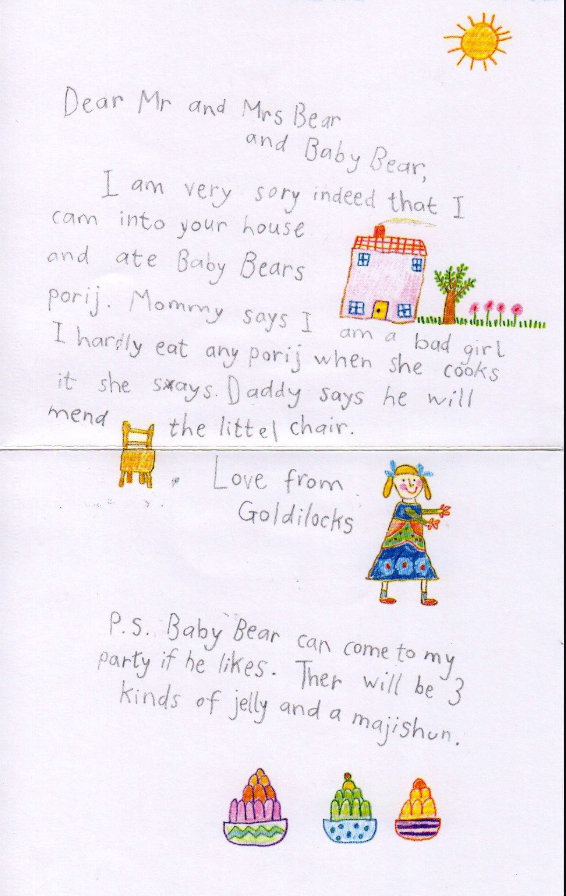 Dear Mr and Mrs Bear
and Baby Bear,
I am very sory indeed that I
cam into your house
and ate Baby Bears
porij. Mommy says I am a bad girl
I hardly eat any porij when she cooks
it she says. Daddy says he will
mend the littel chair.
Love from
Goldilocks
P.S. Baby Bear can come to my
party if he likes. Ther will be 3
kinds of jelly and a majishun.